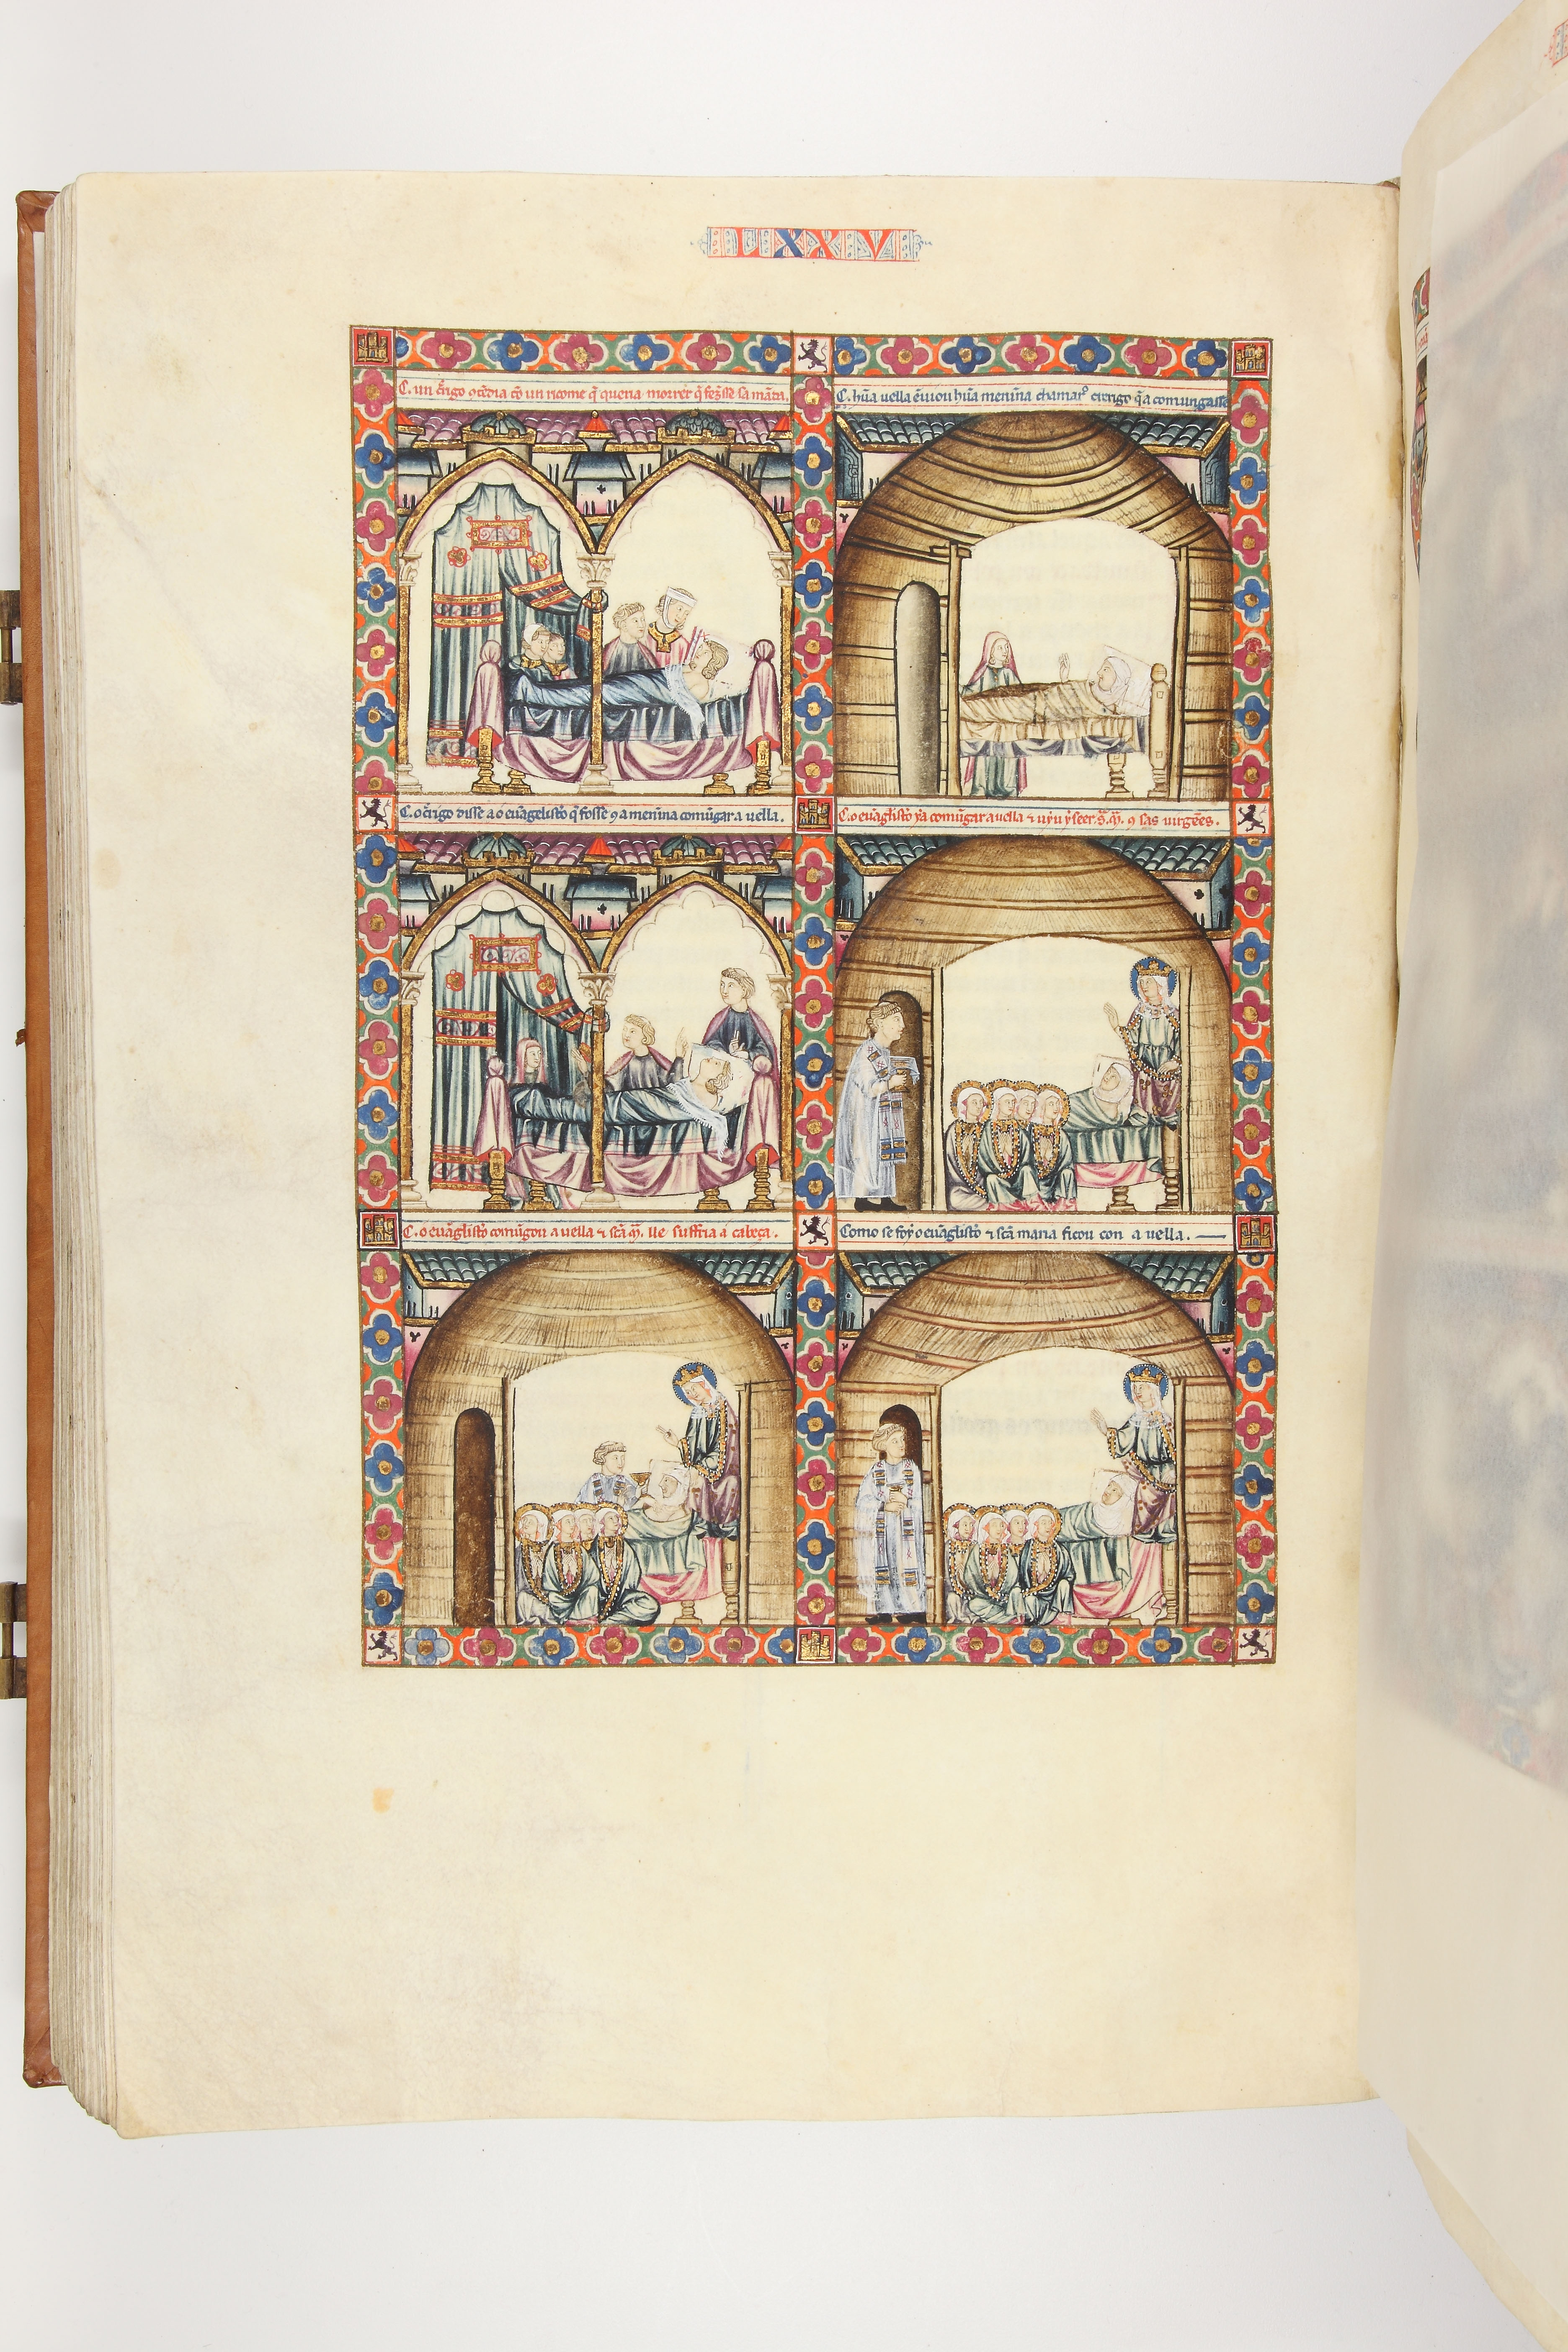 LXXV
C. un c̃rigo ocẽdia cõ un ricome q̃ queria morrer q̃ fezesse sa mãda.
C. hũa uella ẽuiou hũa menin̄a chamar o clerigo q̃ a comungasse
C. o c̃rigo disse a o euãgelisto q̃ fosse ꝯ a menin̄a comũgar a uella.
C. o euãglisto ya comũgar a uella ⁊ uyu y seer. S̃. M̃. ꝯ sas uirgẽes.
C. o euãglisto comũgou a uella ⁊ scã. M̃. lle suffria a cabeça.
Como se foy o euãglisto ⁊ scã maria ficou con a uella.